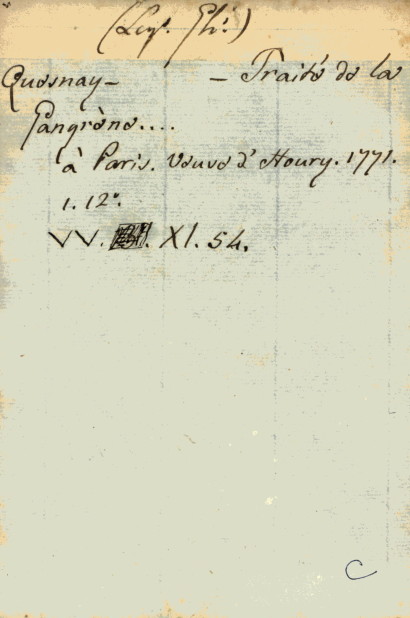 Quesnay - - Traité de la
Gangrène....
à Paris. Veuve d'Houry. 1771.
1. 12°.
VV. XI. 54.
C